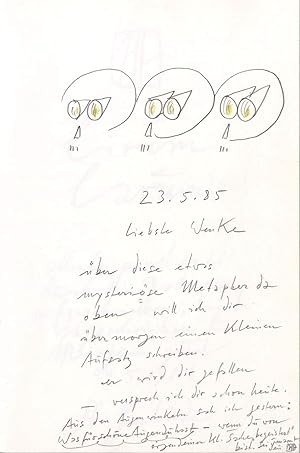 23.5.85
liebste Wenke
über diese etwas
mysteriöse Metapher da
oben will ich dir
übermorgen einen kleinen
Aufsatz schreiben.
er wird dir gefallen
— versprech ich dir schon heute.
Aus den Augenwinkeln sah ich gestern:
Was für schöne Augen du hast — wenn du von
irgendeiner kl. Sache "begeistert"
bist.